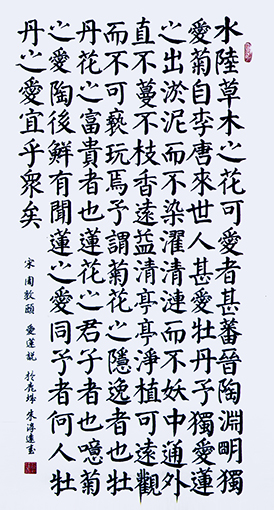 水陸草木之花可愛者甚蕃晉陶淵明獨
愛菊自李唐來世人甚愛牡丹予獨愛蓮
之出淤泥而不染濯清漣而不妖中通外
直不蔓不枝香遠益清亭亭淨植可遠觀
而不可褻玩焉予謂菊花之隱逸者也牡
丹花之富貴者也蓮花之君子者也噫菊
之愛陶後鮮有聞蓮之愛同予者何人牡
丹之愛宜乎眾矣
宋 周敦頤 愛蓮說 於 朱